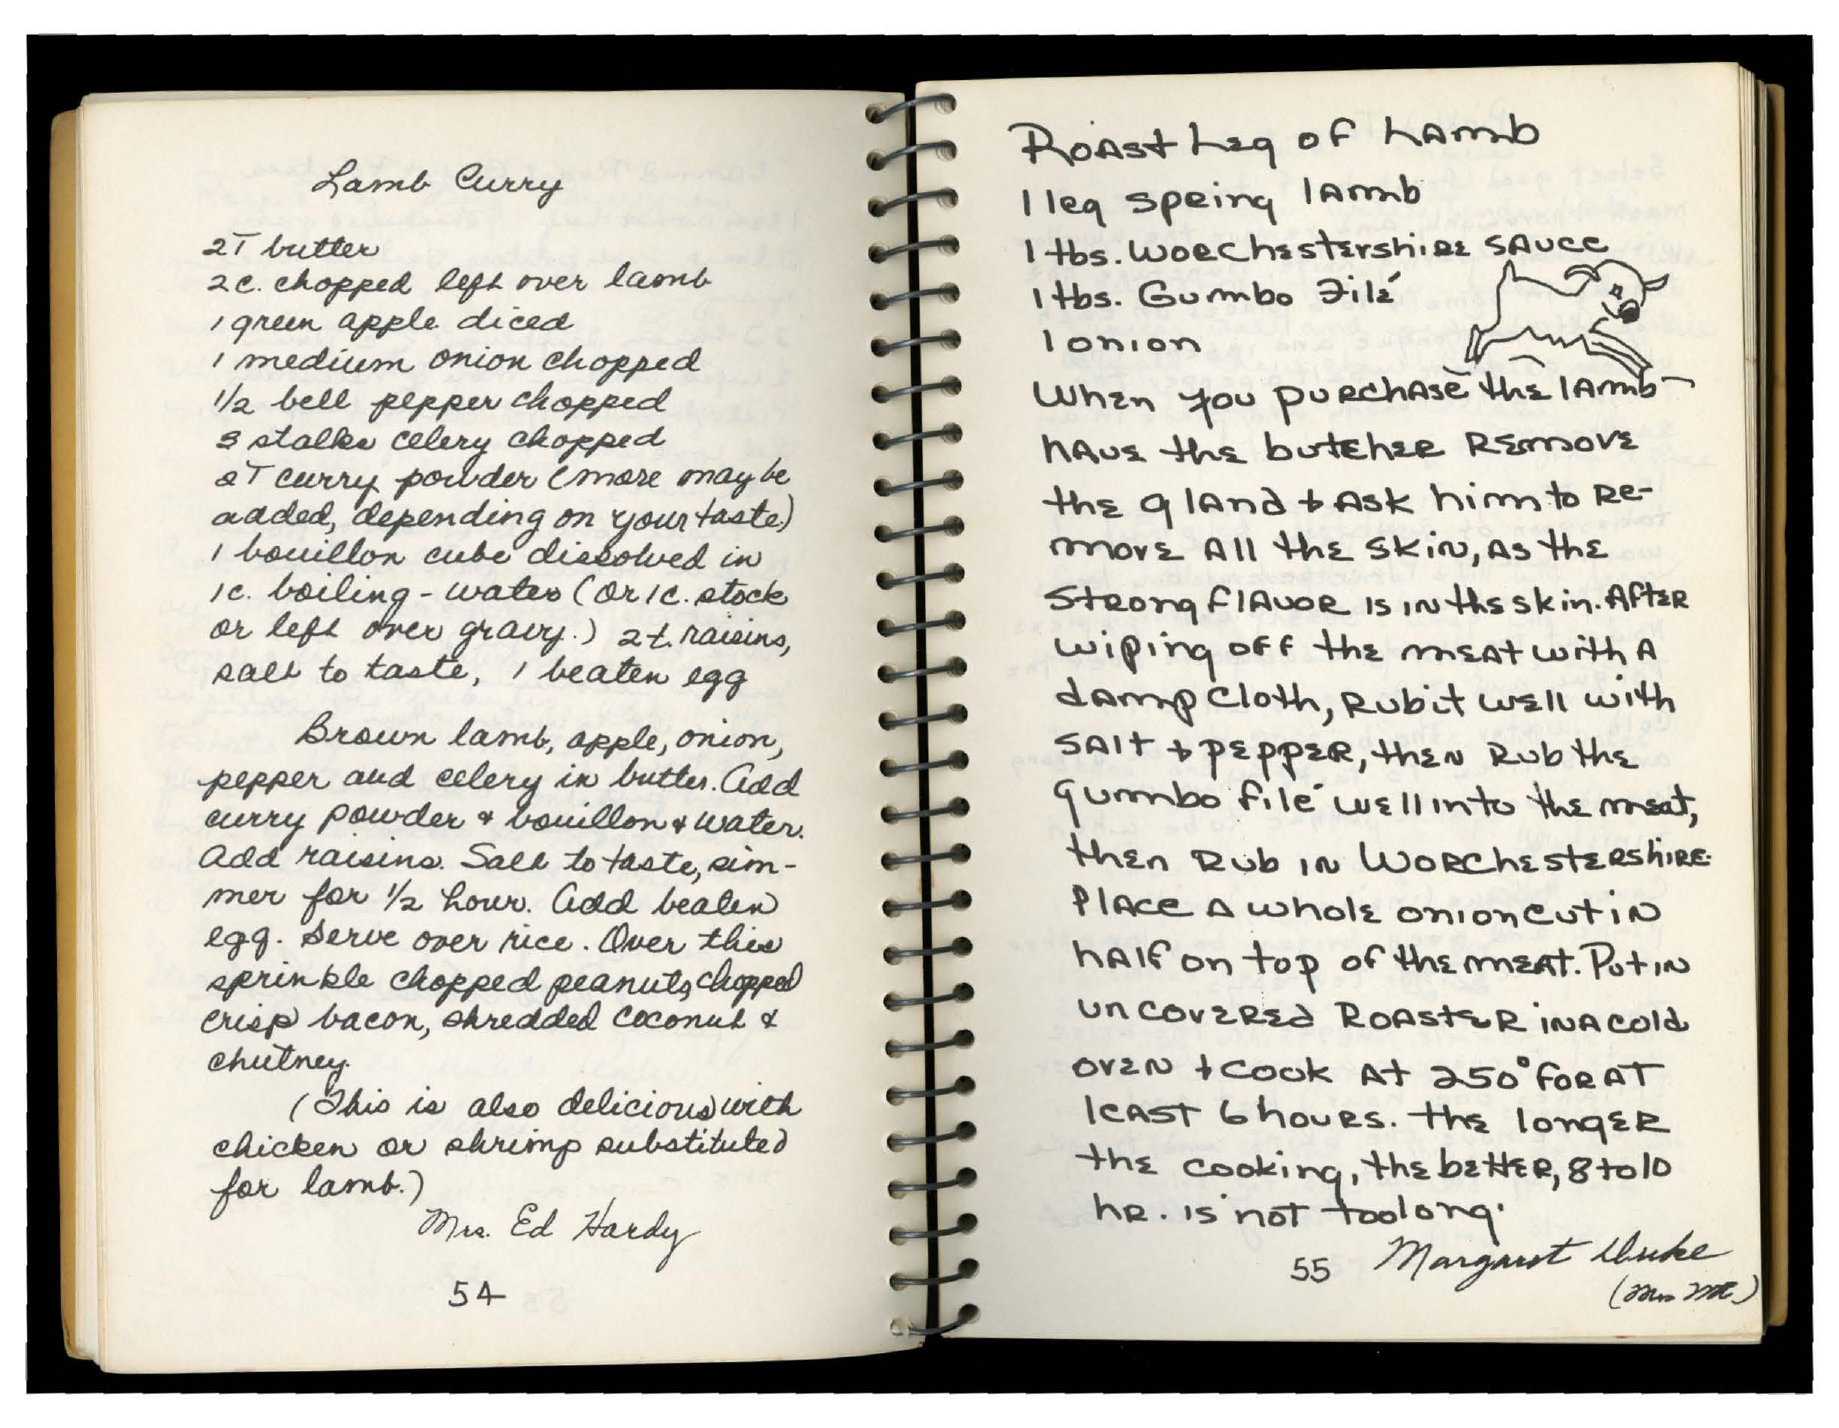 Lamb Curry
2T butter
2c. chopped left over lamb
1 green apple diced
1 medium onion chopped
1/2 bell pepper chopped
3 stalks celery chopped
2T curry powder (more may be
added, depending on your taste.)
1 bouillon cube dissolved in
1c. boiling-water (or 1c. stock
or left over gravy.) 2t. raisins,
salt to taste, 1 beaten egg
Brown lamb, apple, onion,
pepper and celery in butter. Add
curry powder & bouillon & water.
Add raisins. Salt to taste, sim-
mer for 1/2 hour. Add beaten
egg. Serve over rice. Over this
sprinkle chopped peanuts, chopped
crisp bacon, shredded coconut &
chutney.
(This is also delicious with
chicken or shrimp substituted
for lamb.)
Mrs. Ed Hardy
54
Roast Leg of Lamb
1 leg spring lamb
1 tbs. Worchestershire sauce
1 tbs. Gumbo Filé
1 onion
When you purchase the lamb
have the butcher remove
the gland & ask him to re-
move all the skin, as the
strong flavor is in the skin. After
wiping off the meat with a
damp cloth, rub it well with
salt & pepper, then rub the
gumbo filé well into the meat,
then rub in Worchestershire.
Place a whole onion cut in
half on top of the meat. Put in
uncovered roaster in a cold
oven & cook at 250° for at
least 6 hours. The longer
the cooking, the better, 8 to 10
hr. is not too long.
55 Margaret Duke
(Mrs